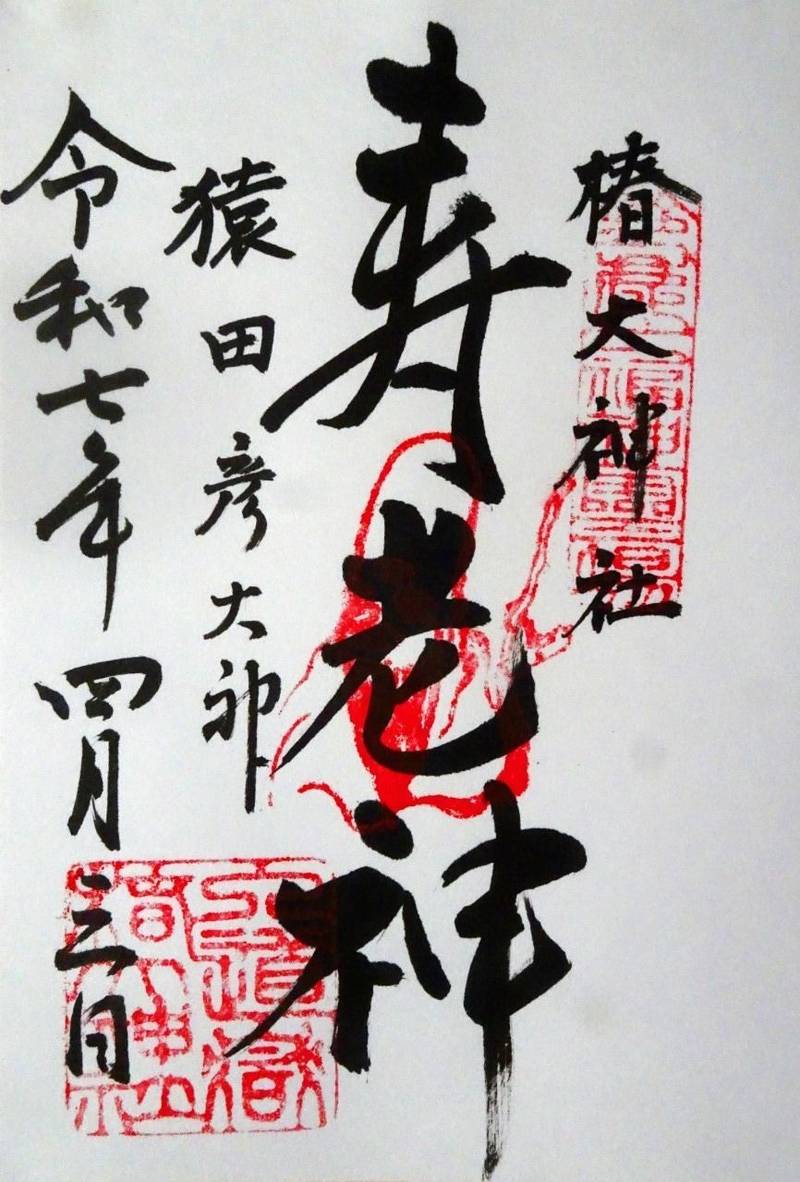 椿大神社
寿老神
猿田彦大神
令和七年四月三日